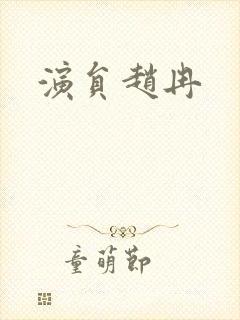 演員趙冉
童萌節